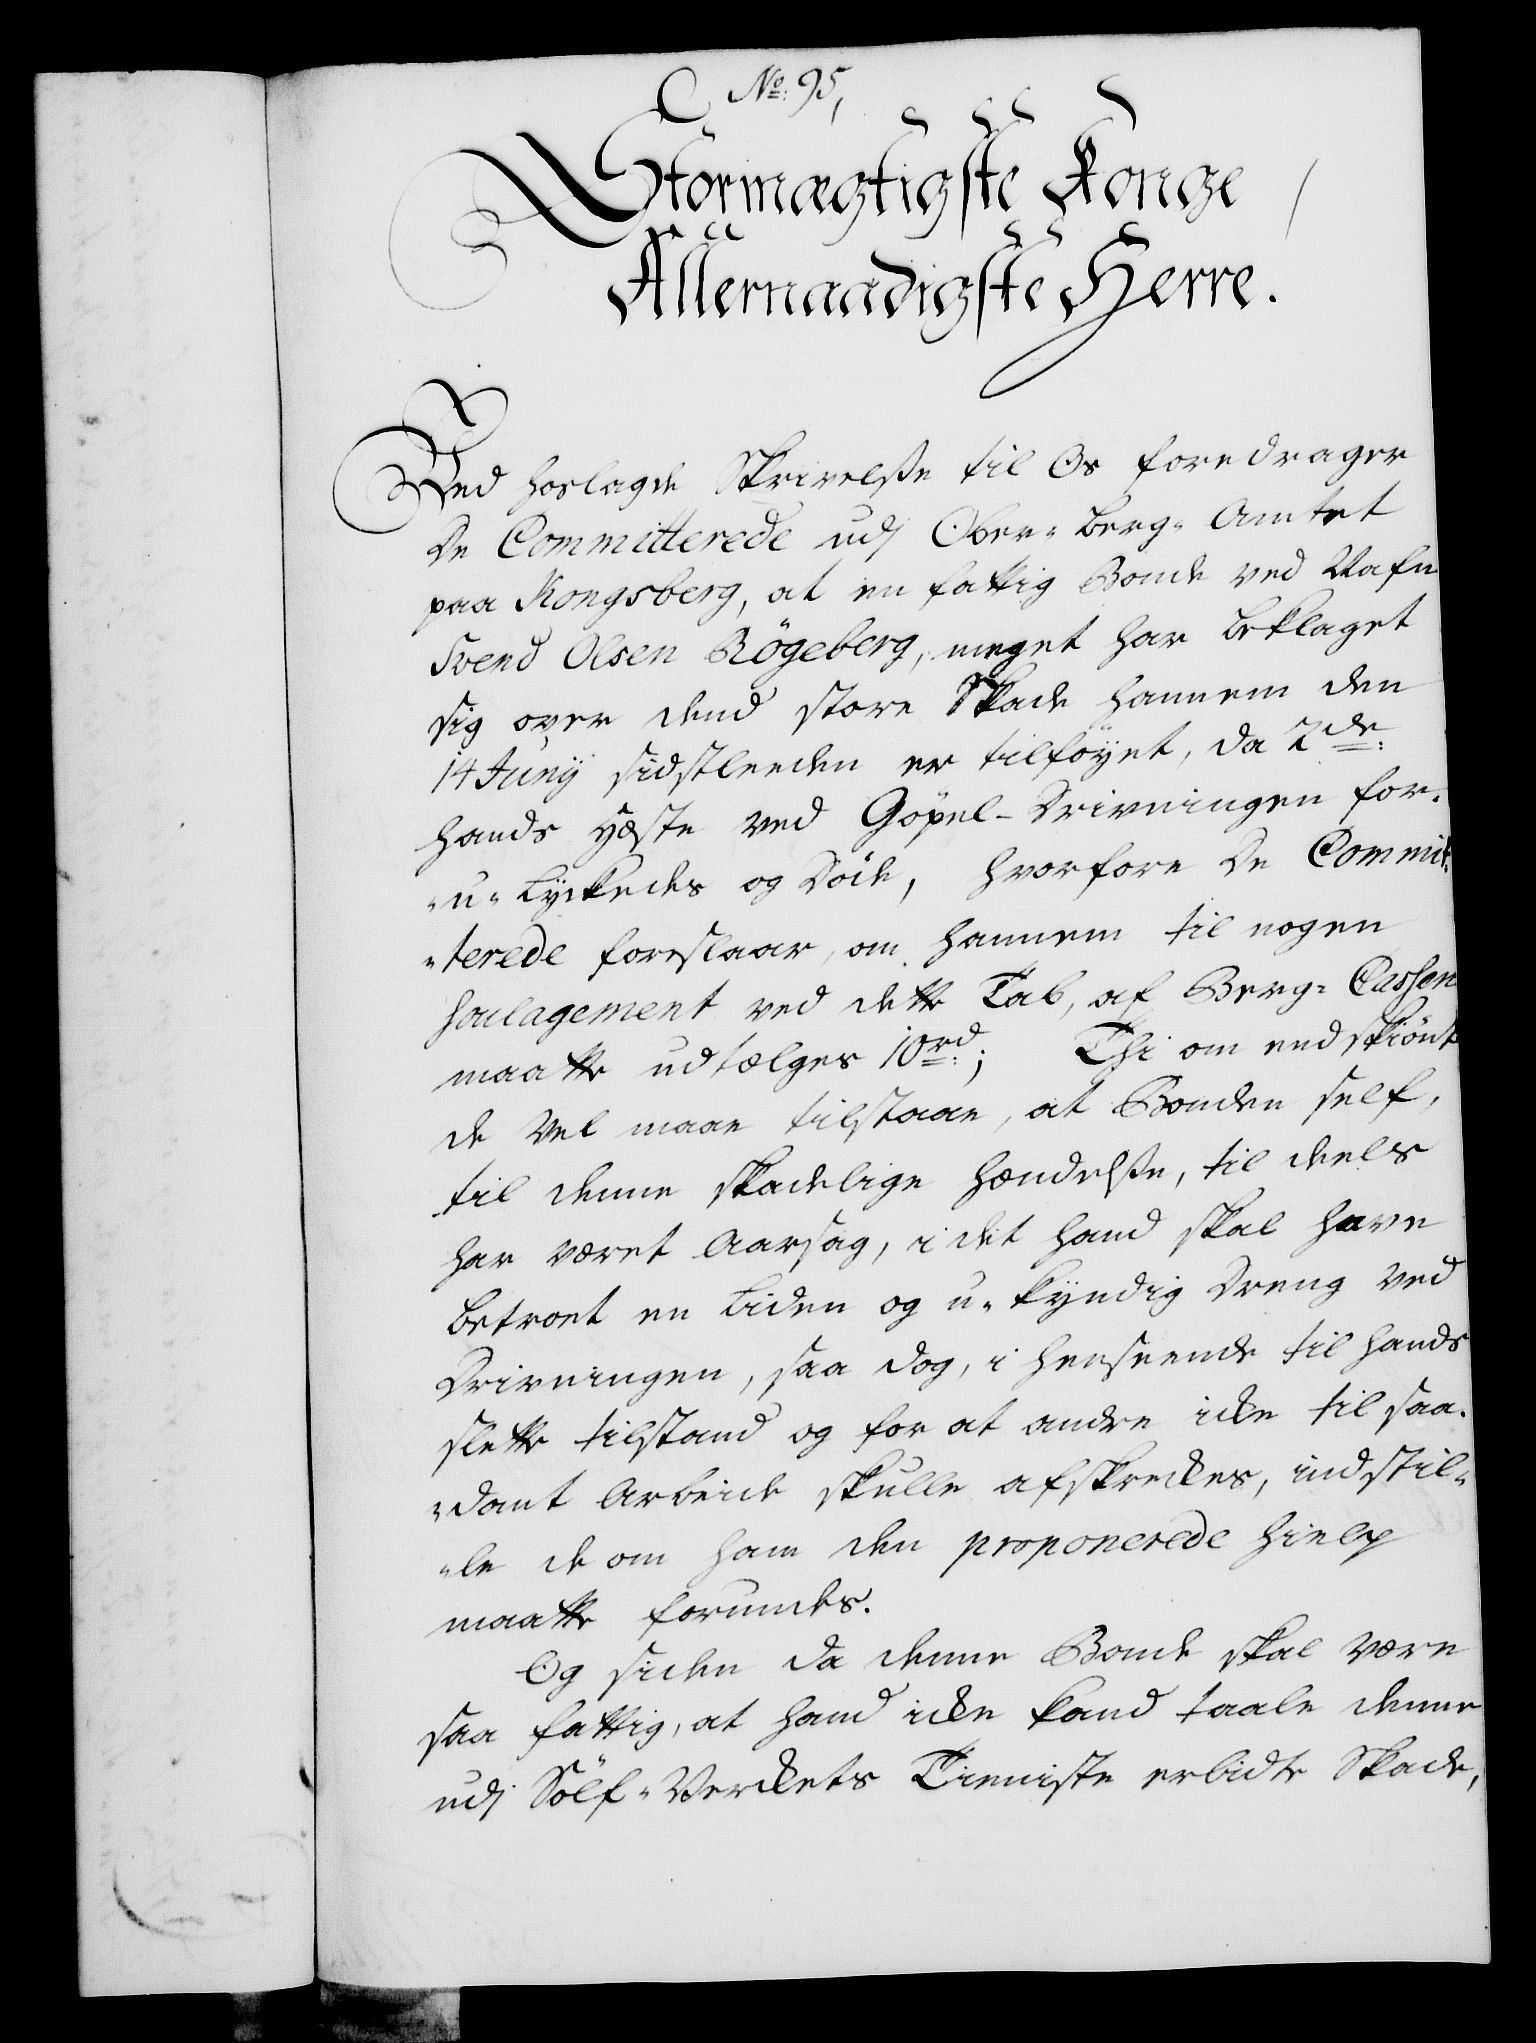 No: 95,
Stormægtigste Konge
Allernaadigste Herre.
Ved hoslagde Skrivelsse til Os foredrager
De Committerede udj Ober- Berg- Amtet
paa Kongsberg, at en fattig Bonde ved Nafn
Svend Olsen Rögeberg, meget har beklaget
sig over dend store Skade hannem den
14 Junij sidstleeden er tilföyet, da 2de:
hands Hæste ved Göpel-Drivningen for-
-u- Lyckedes og Döde, hvorfore De Commit-
-terede foreslaar, om hannem til nogen
Soulagement ved dette Tab, af Berg- Cassen
maatte udtælges 10rd:; Thi om endskiönt
de Vel maae tilstaae, at Bonden self,
til denne skadelige hændelsse, til deels
har været Aarsag, i det hand skal have
betroet en Liden og u-kyndig Dreng ved
Drivningen, saa dog, i henseende til hands
slette tilstand og for at andre icke til saa-
-dant Arbeide skulle afskreckes, indstil-
-le de om ham den proponerede hielp
maatte forundes.
Og siden da denne Bonde skal være
saa fattig, at hand icke kand taale denne
udj Sölf-Verckets Tieniste erlidte Skade,